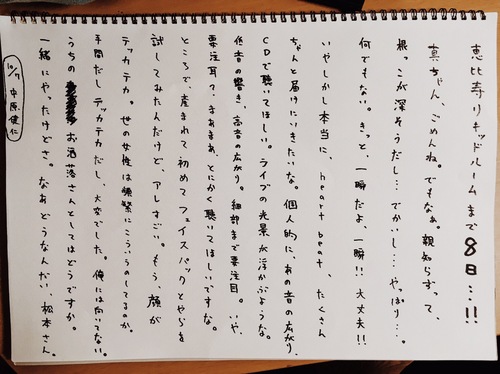 恵比寿リキッドルームまで8日…!!
真ちゃん、ごめんね。でもなぁ。親知らずって、
根っこが深そうだし…でかいし…やっぱり…。
何でもない。きっと、一瞬だよ、一瞬!!大丈夫!!
いやしかし本当に、heart beat、たくさん
ちゃんと届けにいきたいな。個人的に、あの音の広がり、
CDで聴いてほしい。ライブの光景が浮かぶような。
低音の響き、高音の広がり。細部まで要注目。いや、
要注耳？、まぁまぁ、とにかく聴いてほしいですな。
ところで産まれて初めてフェイスパックとやらを
試してみたんだけど、アレすごい。もう、顔が
テッカテカ。世の女性は頻繁にこういうのしてるのか。
手間だしテッカテカだし、大変でした。俺には向いてない。
うちのお洒落さんとしてはどうですか。
一緒にやったけどさ。なあどうなんだい、松本さん。
10/7 中原健仁